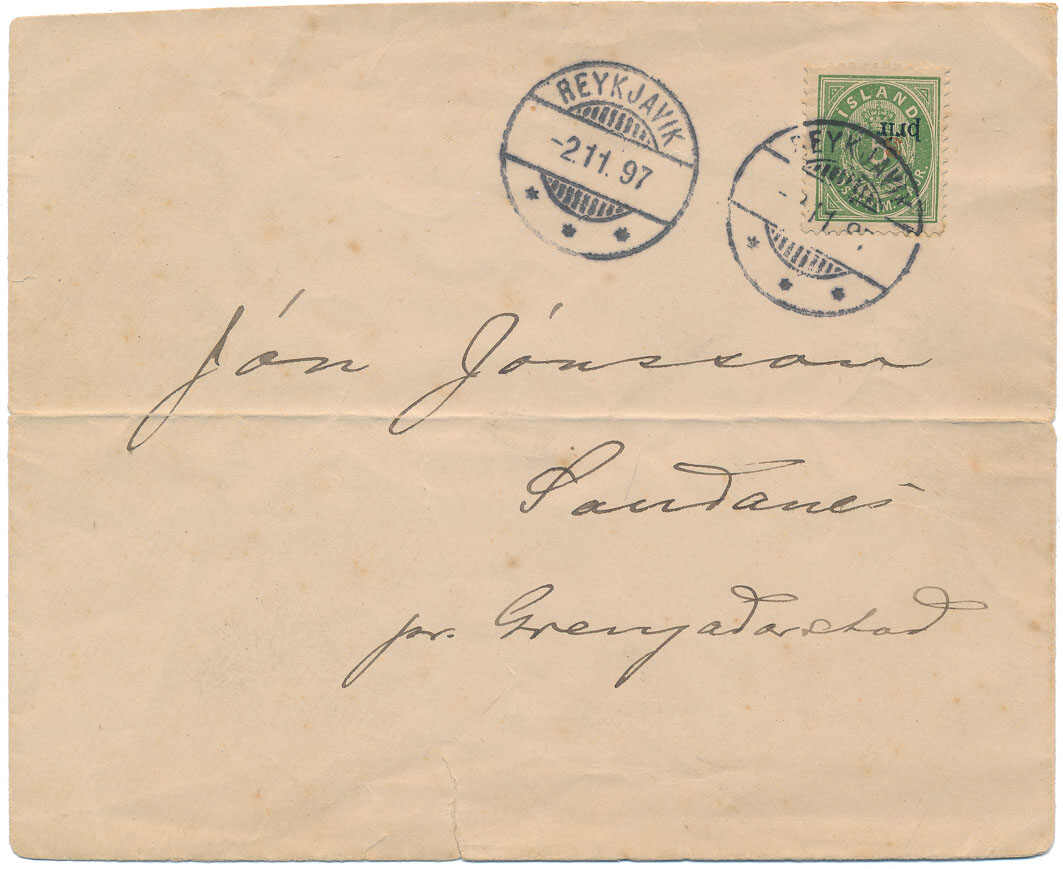 REYKJAVIK
-2.11.97
ÍSLAND
þrír
REYKJAVIK
Jón Jónsson
Saudanes
pr. Grenjadarstad